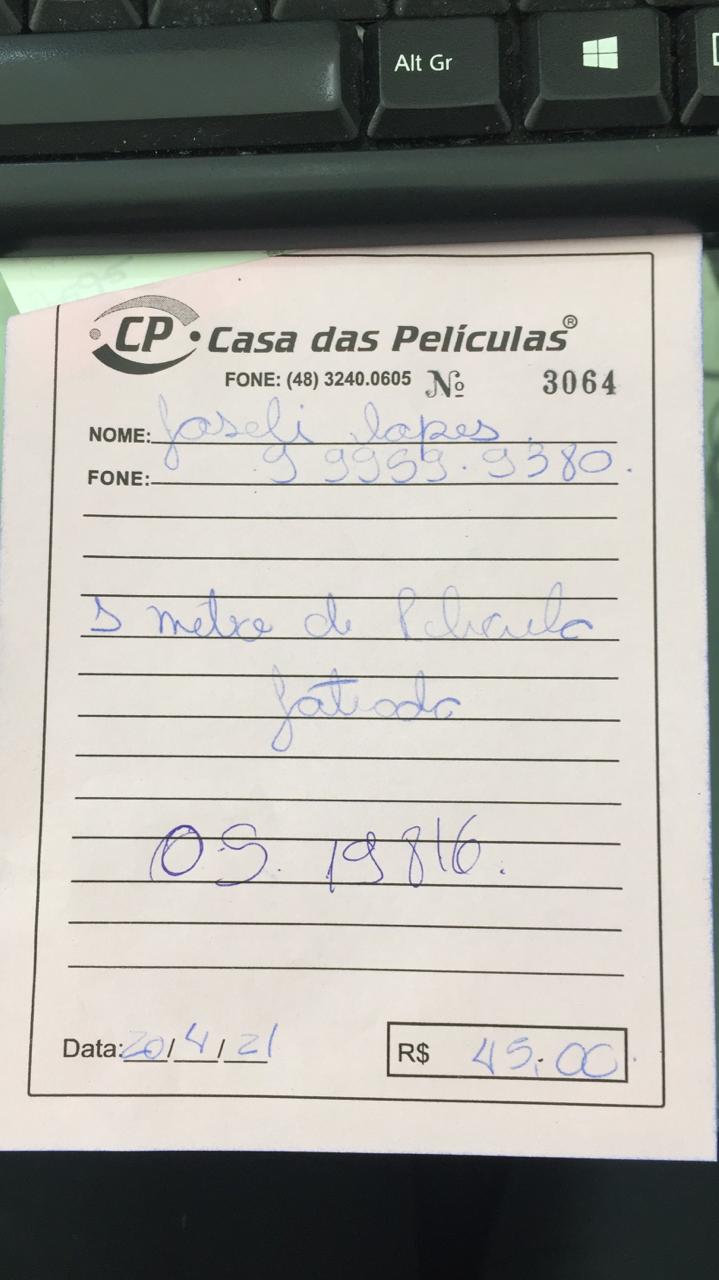 Alt Gr
CP • Casa das Películas®
FONE: (48) 3240.0605 Nº 3064
NOME: Joseli Lopes
FONE: 9 9959.9380.
1 metro de Pelicula
fatiada
OS. 19816.
Data: 20/4/21 R$ 45,00